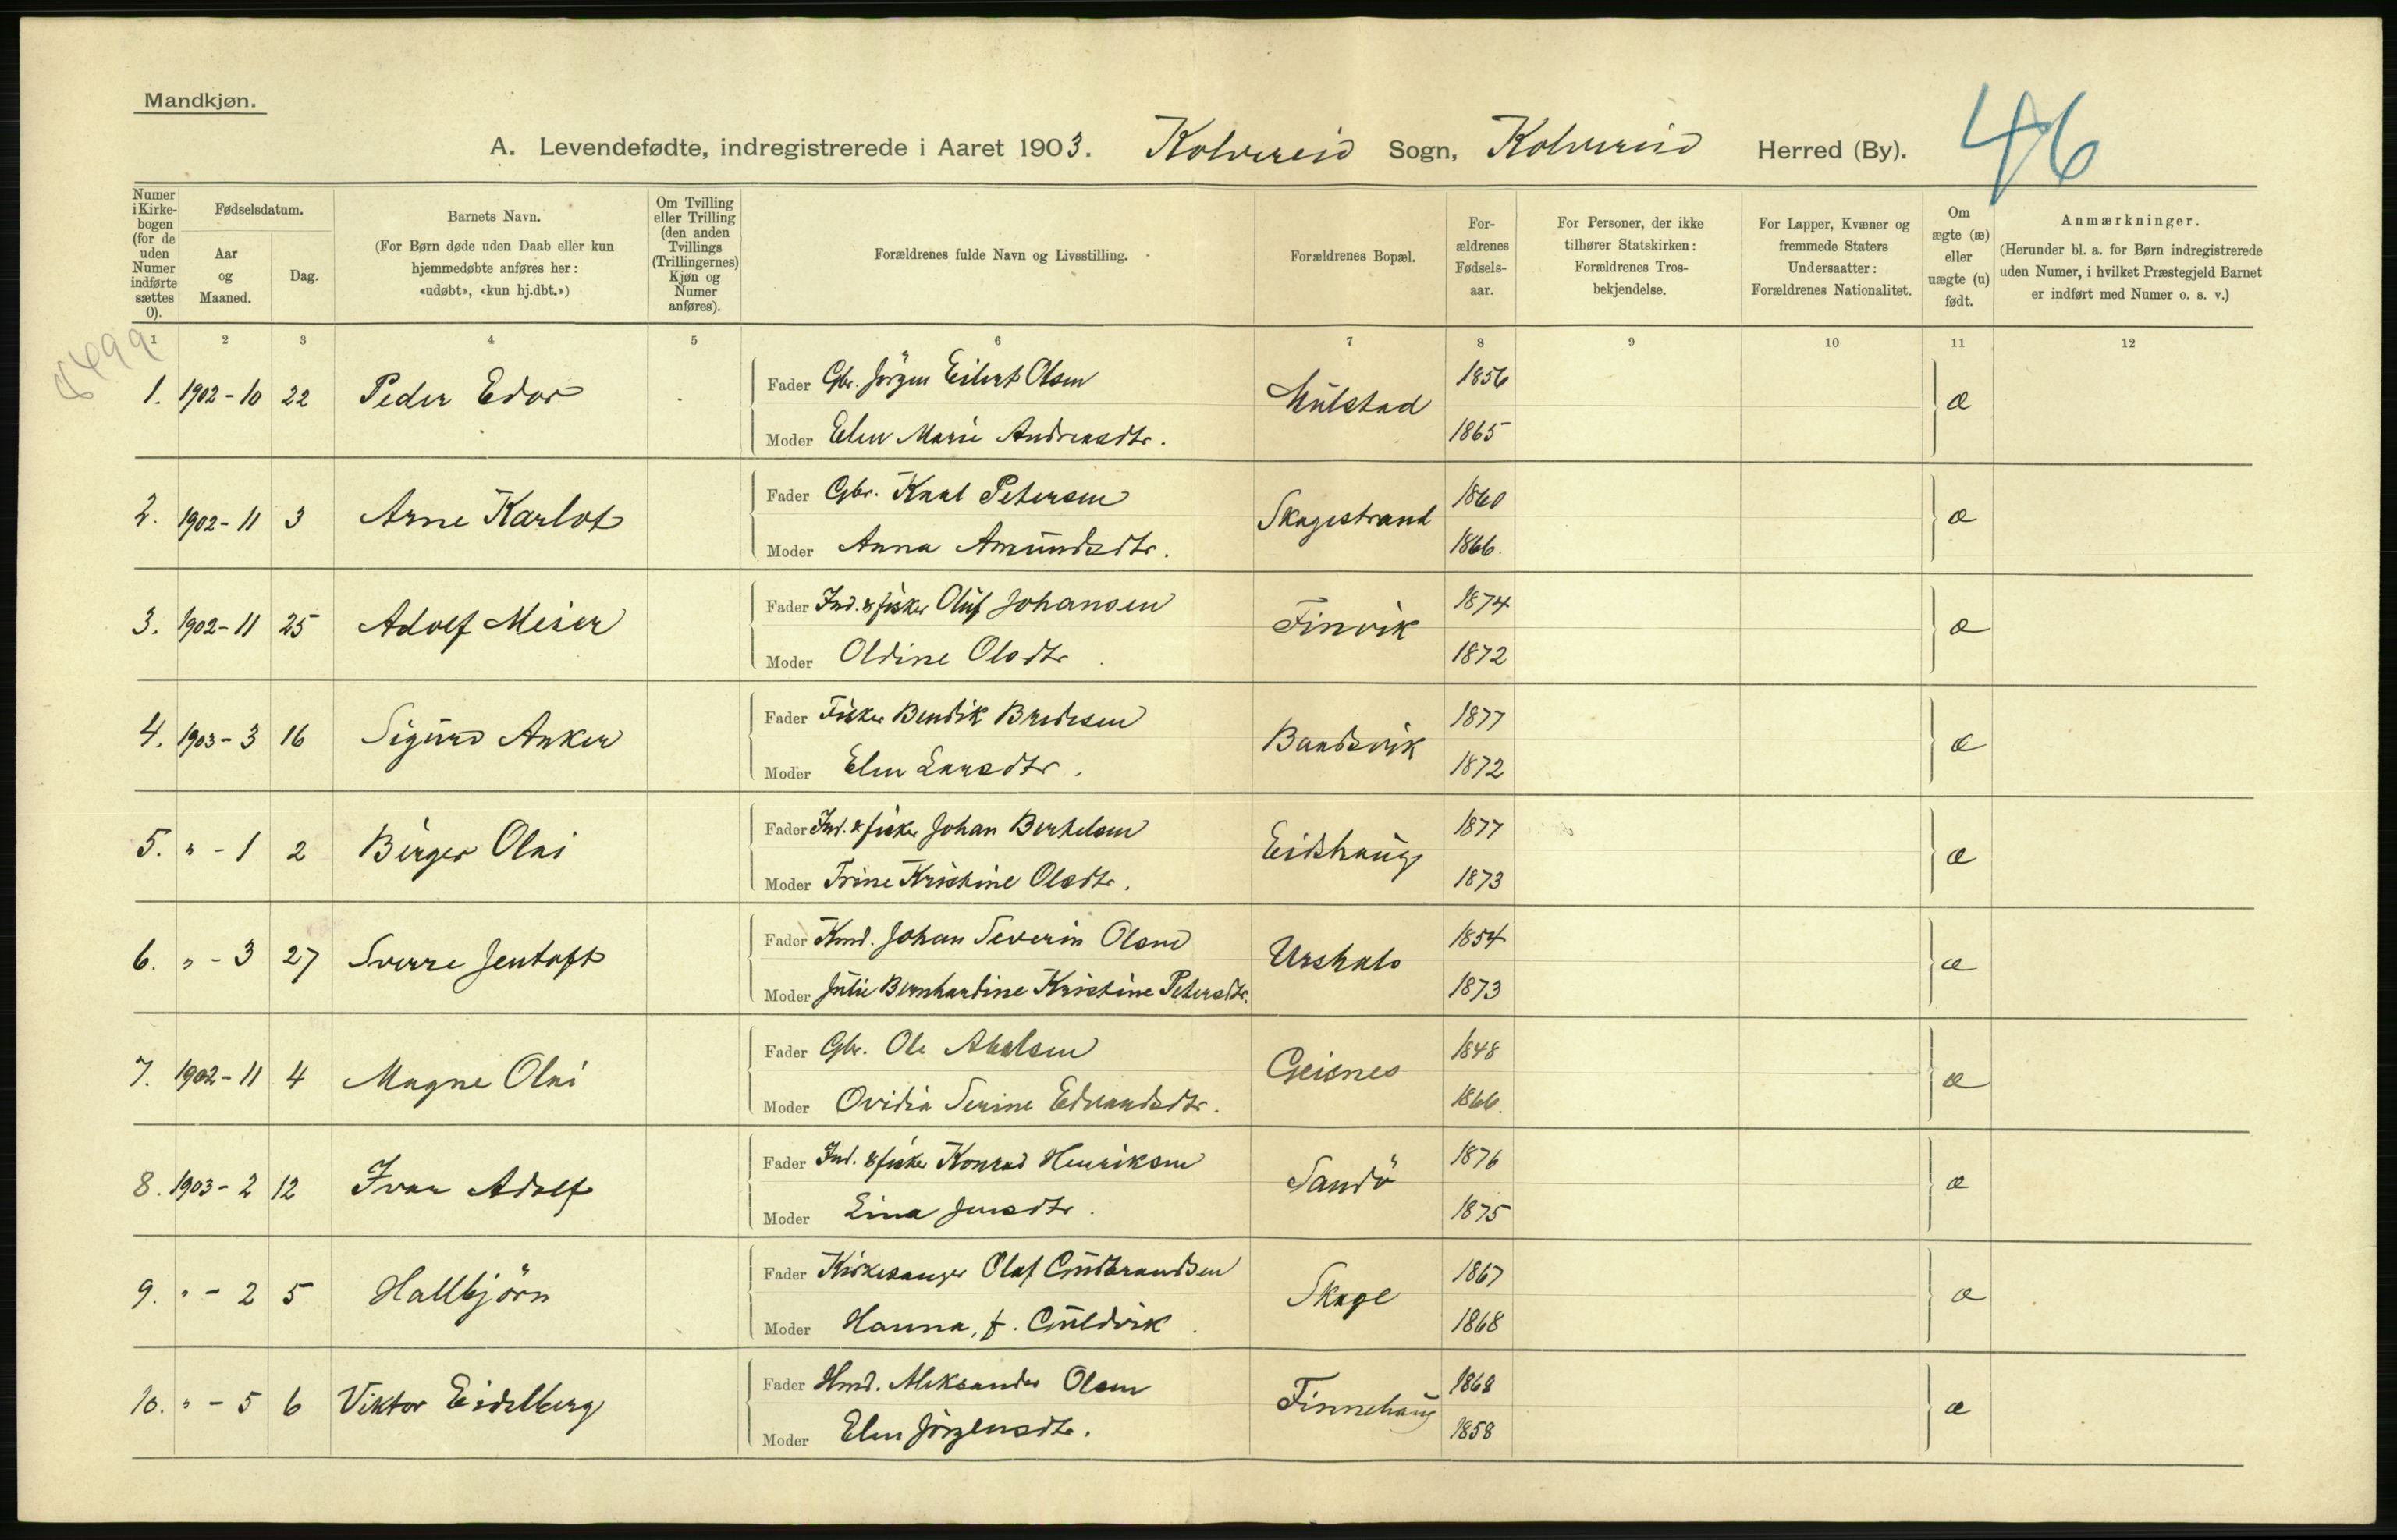 Mandkjøn.
A. Levendefødte, indregistrerede i Aaret 1903. Kolvereid Sogn, Kolvereid Herred (By). 46
Numer i Kirkebogen (for de uden Numer indførte sættes 0).
Fødselsdatum.
Aar og Maaned.
Dag.
Barnets Navn.
(For Børn døde uden Daab eller kun hjemmedøbte anføres her: «udøbt», «kun hj.dbt.»)
Om Tvilling eller Trilling (den anden Tvillings (Trillingernes) Kjøn og Numer anføres).
Forældrenes fulde Navn og Livsstilling.
Forældrenes Bopæl.
Forældrenes Fødselsaar.
For Personer, der ikke tilhører Statskirken: Forældrenes Trosbekjendelse.
For Lapper, Kvæner og fremmede Staters Undersaatter: Forældrenes Nationalitet.
Om ægte (æ) eller uægte (u) født.
Anmærkninger.
(Herunder bl. a. for Børn indregistrerede uden Numer, i hvilket Præstegjeld Barnet er indført med Numer o. s. v.)
1 2 3 4 5 6 7 8 9 10 11 12
1. 1902-10 22 Peder Edor Fader Gbr. Jörgen Eilert Olsen Mülstad 1856 æ
Moder Elen Marie Andreasdtr. 1865
2. 1902-11 3 Arne Karlot Fader Gbr. Karl Petersen Skagestrand 1860 æ
Moder Anna Amundsdtr. 1866.
3. 1902-11 25 Adolf Meier Fader Ind. & fisker Oluf Johansen Finvik 1874 æ
Moder Oldine Olsdtr. 1872
4. 1903-3 16 Sigurd Anker Fader Fisker Bendik Bredesen Baadsvik 1877 æ
Moder Elen Larsdtr. 1872
5. " - 1 2 Birger Olai Fader Ind. & fisker Johan Berthelsen Eidshaug 1877 æ
Moder Trine Kristine Olsdtr. 1873
6. " - 3 27 Sverre Jentoft Fader Kmd. Johan Severin Olsen Urshals 1854 æ
Moder Julie Bernhardine Kristine Petersdtr. 1873
7. 1902-11 4 Magne Olai Fader Gbr. Ole Abelsen Geisnes 1848 æ
Moder Ovidia Serine Edvardsdtr. 1866.
8. 1903-2 12 Ivar Adolf Fader Ind. & fisker Konrad Henriksen Sandö 1876 æ
Moder Lina Jensdtr. 1875
9. " - 2 5 Hallbjörn Fader Kirkesanger Olaf Gudbrandsen Skage 1867 æ
Moder Hanna, f. Guldvik. 1868
10. " - 5 6 Viktor Eidelberg Fader Hmd. Aleksander Olsen Finnehaug 1868 æ
Moder Elen Jörgensdtr. 1858